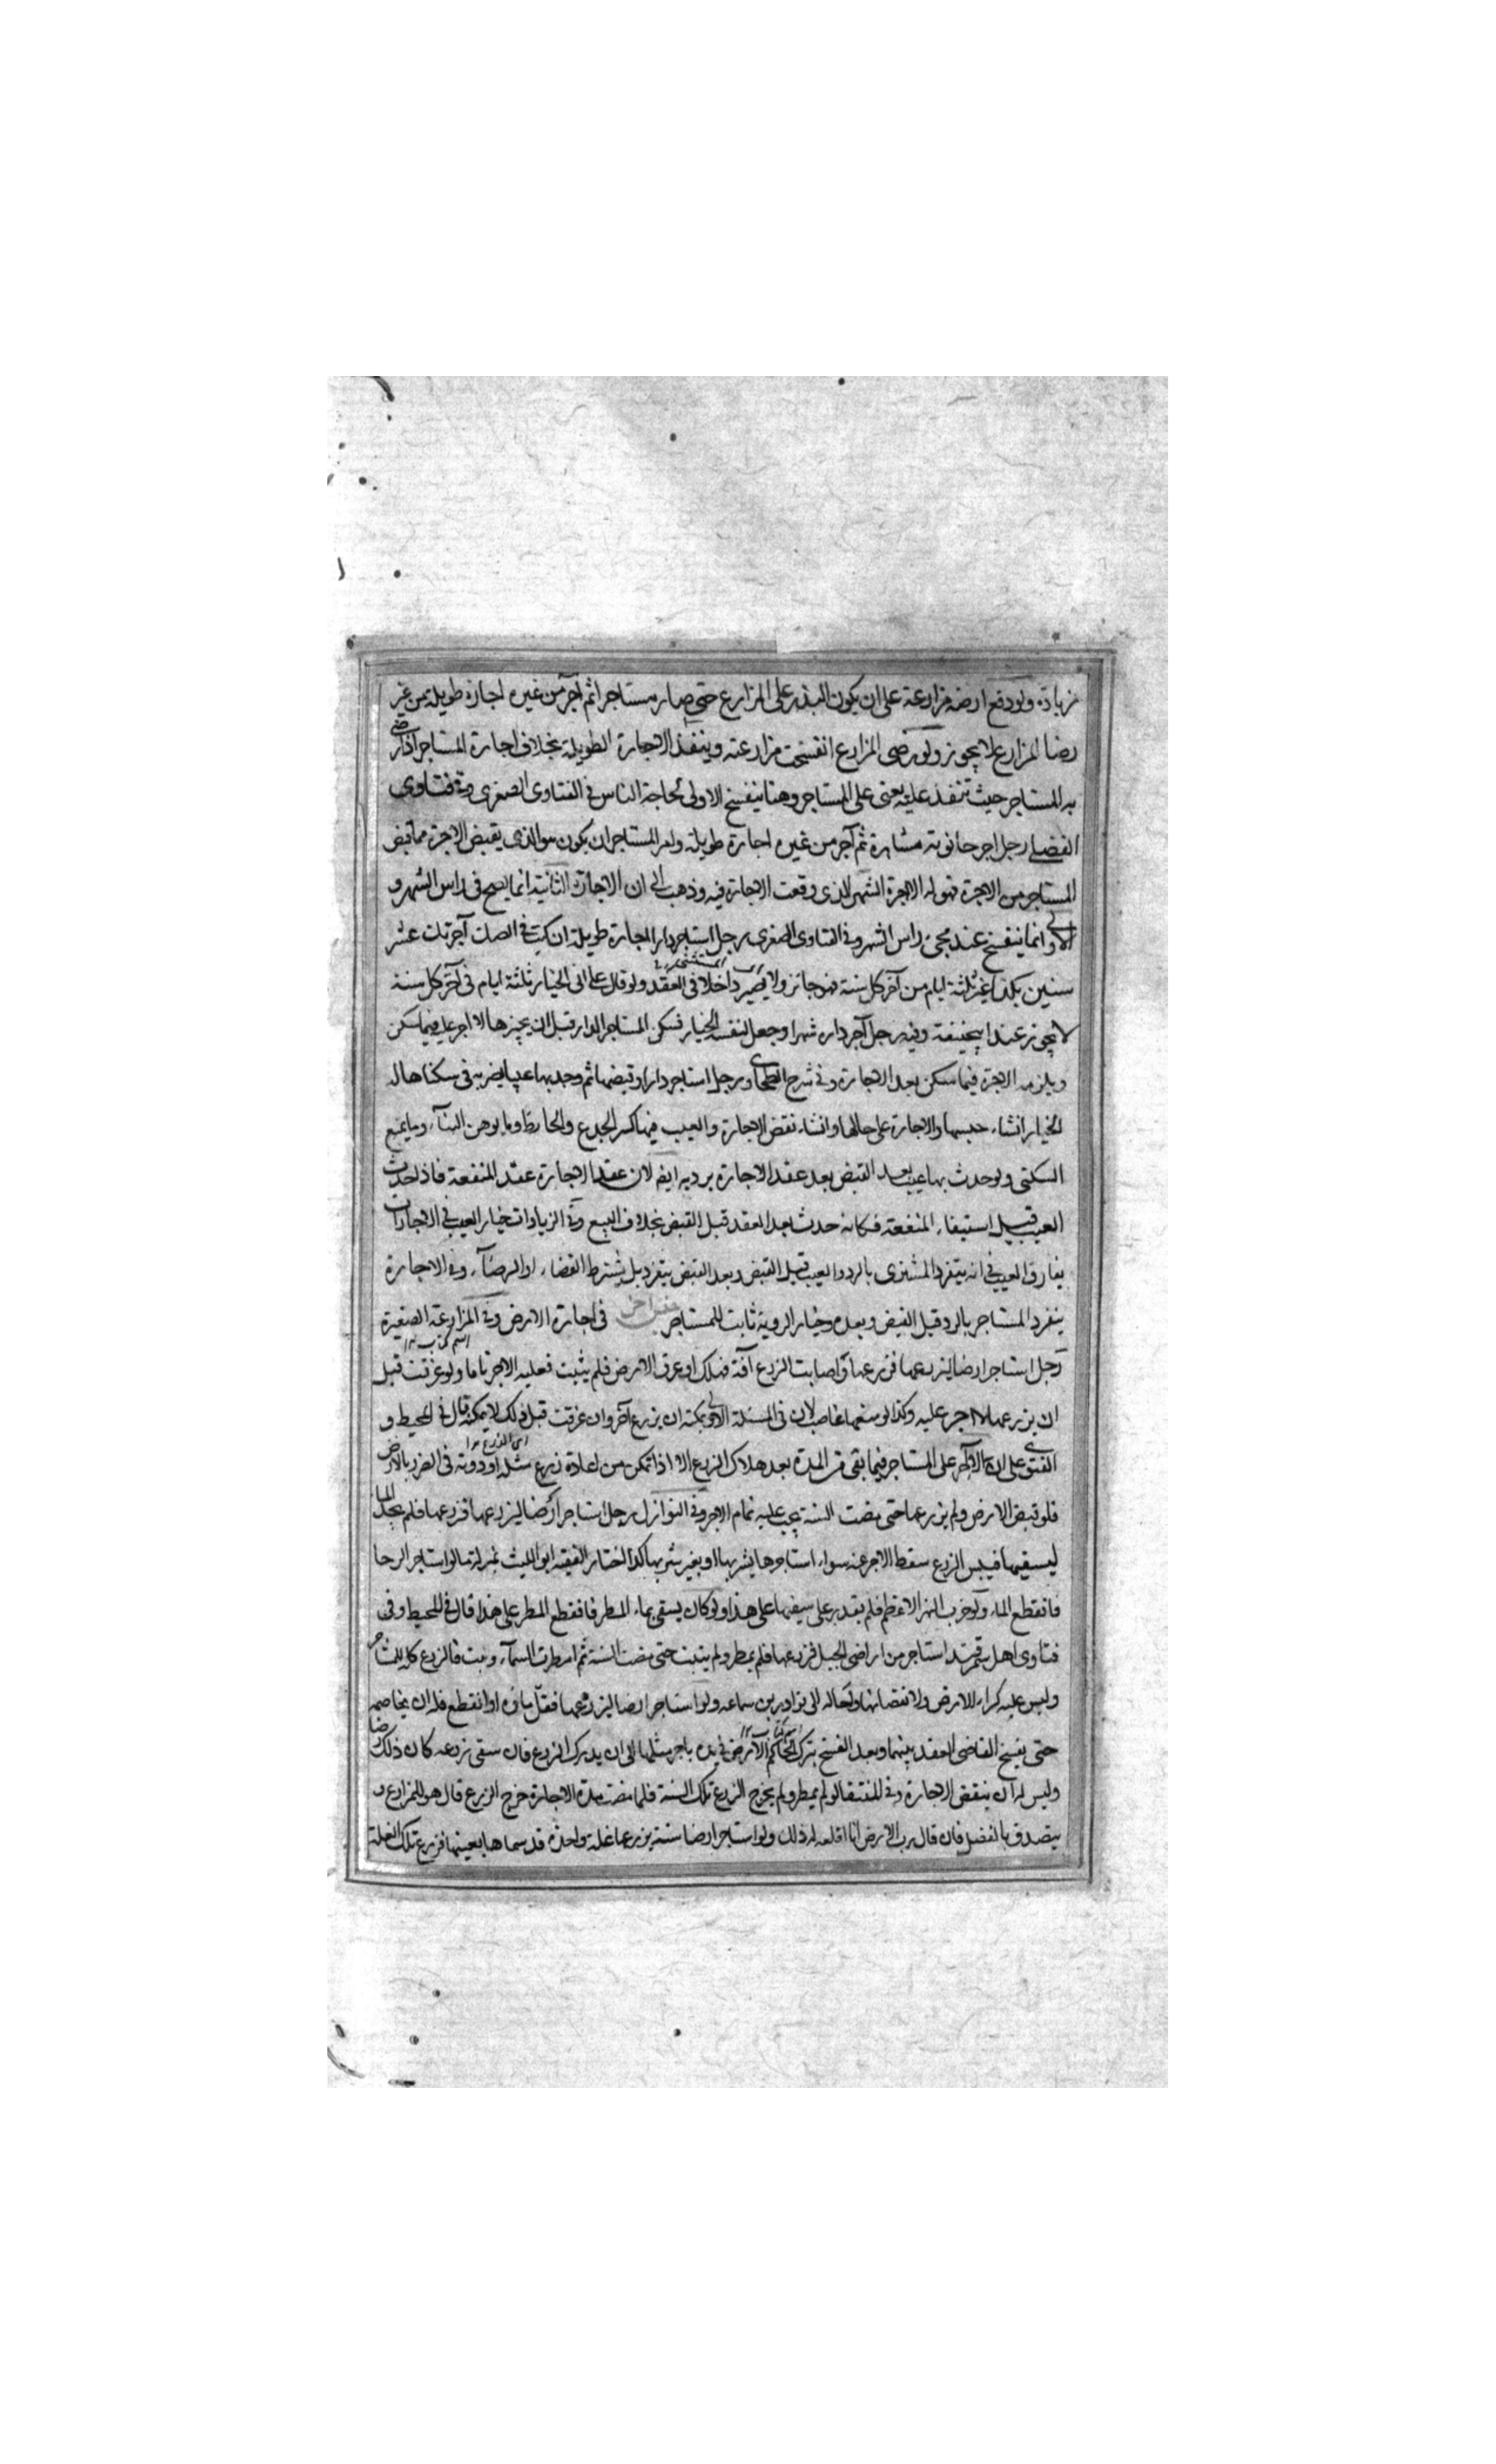 زيادة ولو دفع ارضه مزارعة على ان يكون البذر على المزارع حتى صار مستاجرا ثم آجر من غيره اجازة طويلة من غير
رضا المزارع لا يجوز ولو رضى المزارع انفسخت مزارعته وينفذ الاجارة الطويلة بخلاف اجارة المستاجر اذا رضى
به المستاجر حيث تنفذ عليه يعنى على المستاجر وهنا ينفسخ الاولى لحاجة الناس فى الفتاوى الصغرى وفى فتاوى
الفضلى رجل اجر حانوته مشاهرة ثم آجر من غيره اجارة طويلة وامر المستاجر ان يكون هو الذى يقبض الاجرة مما قبض
المستاجر من الاجرة فهو له الا اجرة الشهر الذى وقعت الاجارة فيه وذهب الى ان الاجارة الثانية انما يصح فى راس الشهر و
الاولى انما ينفسخ عند مجئ راس الشهر وفى الفتاوى الصغرى رجل استاجر دارا اجارة طويلة ان كتب فى الصك آجرتك عشر
سنين بكذا غير ثلثة ايام من آخر كل سنة فهو جائز ولا يصير داخلا فى العقد ولو قال على انى الخيار ثلثة ايام فى آخر كل سنة
لا يجوز عند ابيحنيفة وفيه رجل آجر داره شهرا وجعل لنفسه الخيار فسكن المستاجر الدار قبل ان يجيزها لا اجر عليه فيما سكن
ويلزمه الاجرة فيما سكن بعد الاجارة وفى شرح الطحاوى رجل استاجر دارا وقبضها ثم وجد بها عيبا يضر به فى سكناها له
الخيار انشاء حبسها والاجارة على حالها وانشاء نقض الاجارة والعيب فيها كسر الجذع والحائط وما يوهن البناء وما يمنع
السكنى ولو حدث بها عيب بعد القبض بعد عقد الاجارة يرد به ايضا لان عقد الاجارة عقد المنفعة فاذا حدث
العيب قبل استيفاء المنفعة فكانه حدث بعد العقد قبل القبض بخلاف البيع وفى الزيادات خيار العيب فى الاجارات
يفارق العيب فى انه يتفرد المشترى بالرد والعيب قبل القبض وبعد القبض يتفرد بل يشترط القضاء او الرضاء وفى الاجارة
ينفرد المستاجر بالرد قبل القبض وبعده وخيار الروية ثابت للمستاجر جنس اخر فى اجارة الارض وفى المزارعة الصغيرة
رجل استاجر ارضا ليزرعها فزرعها واصابت الزرع آفة فهلك او غرق الارض فلم يثبت فعليه الاجر تاما ولو غرقت قبل
ان يزرعها لا اجر عليه وكذا لو منعها غاصب لان فى المسئلة الاولى يمكنه ان يزرع آخر وان غرقت قبل ذلك لا يمكنه قال فى المحيط و
الفتوى على ان لا اجر على المستاجر فيما بقى من المدة بعد هلاك الزرع الا اذا تمكن من اعادة زرع مثله او دونه فى الضرر بالارض
فلو قبض الارض ولم يزرعها حتى مضت السنة يجب عليه تمام الاجر وفى النوازل رجل استاجر ارضا ليزرعها فزرعها فلم يجد الماء
ليسقيها فيبس الزرع سقط الاجر عنه سواء استاجرها بشربها او بغير شربها كذا اختار الفقيه ابو الليث بمنزلة ما لو استاجر الرحا
فانقطع الماء ولو خرب النهر الاعظم فلم يقدر على سقيها على هذا ولو كان يسقى بماء المطر فانقطع المطر على هذا قال فى المحيط وفى
فتاوى اهل سمرقند استاجر من اراضى الجبل فزرعها فلم يمطر ولم ينبت حتى مضت السنة ثم امطرت السماء ونبت فالزرع كله للمستاجر
وليس عليه كراء للارض ولا نقصانها واحاله الى نوادر بن سماعه ولو استاجر ارضا ليزرعها فقل ماؤه او انقطع فله ان يخاصمه
حتى يفسخ القاضى العقد بينهما وبعد الفسخ يترك الحاكم الارض فى يده باجر مثلها الى ان يدرك الزرع فان سقى زرعه كان ذلك رضا
وليس له ان ينقض الاجارة وفى المنتقى لو لم يمطر ولم يخرج الزرع تلك السنة فلما مضت مدة الاجارة خرج الزرع قال هو للمزارع و
يتصدق بالفضل فان قال رب الارض انا اقلعه له ذلك ولو استاجر ارضا سنة يزرعها غلة واحدة قد سماها بعينها فزرع تلك الغلة